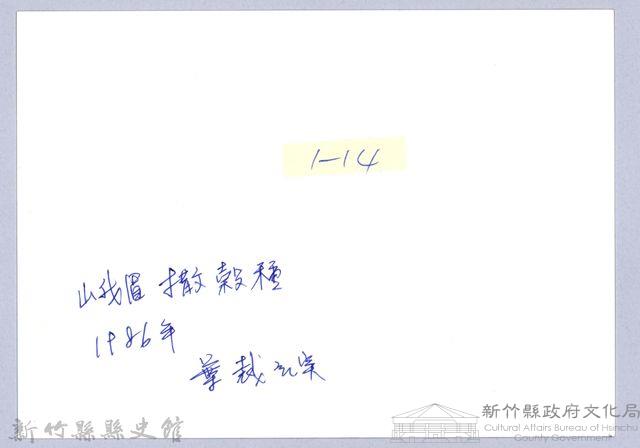 1-14
峨眉 撒穀種
1986年
葉裁
新竹縣縣史館
新竹縣政府文化局
Cultural Affairs Bureau of Hsinchu
County Government